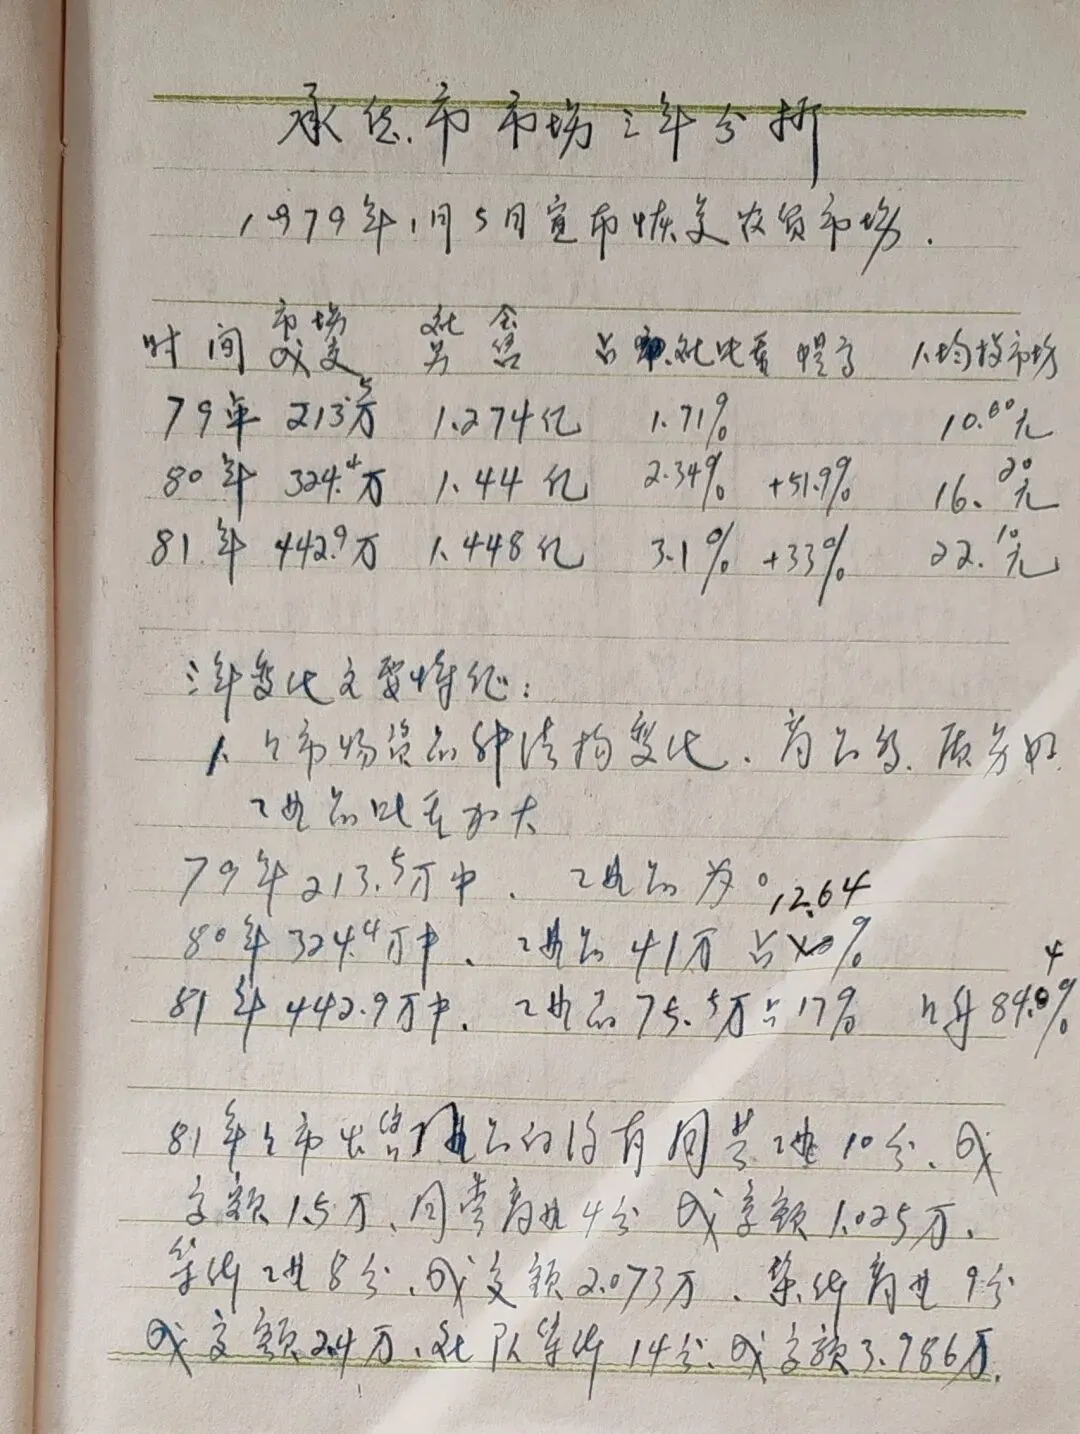 承德市市场三年分析
1979年1月5日宣布恢复农贸市场.
时间 市场成交 社会另售 占社比重 提高 人均投市场
79年 213.5万 1.274亿 1.71% 10.60元
80年 324.4万 1.44亿 2.34% +51.9% 16.20元
81年 442.9万 1.448亿 3.1% +33% 22.10元
三年变化主要特征:
1. 上市物资品种结构变化、商品多、质劣好
工业品比重加大
79年213.5万中、工业品为0
80年324.4万中、工业品41万占12.64%
81年442.9万中、工业品75.5万占17% 上升84.4%
81年上市出售工业品的没有国营工业10个、成
交额1.5万、国营商业4个 成交额1.025万、
集体工业8个、成交额2.073万、集体商业9个
成交额2.4万、社队集体14个、成交额3.786万.